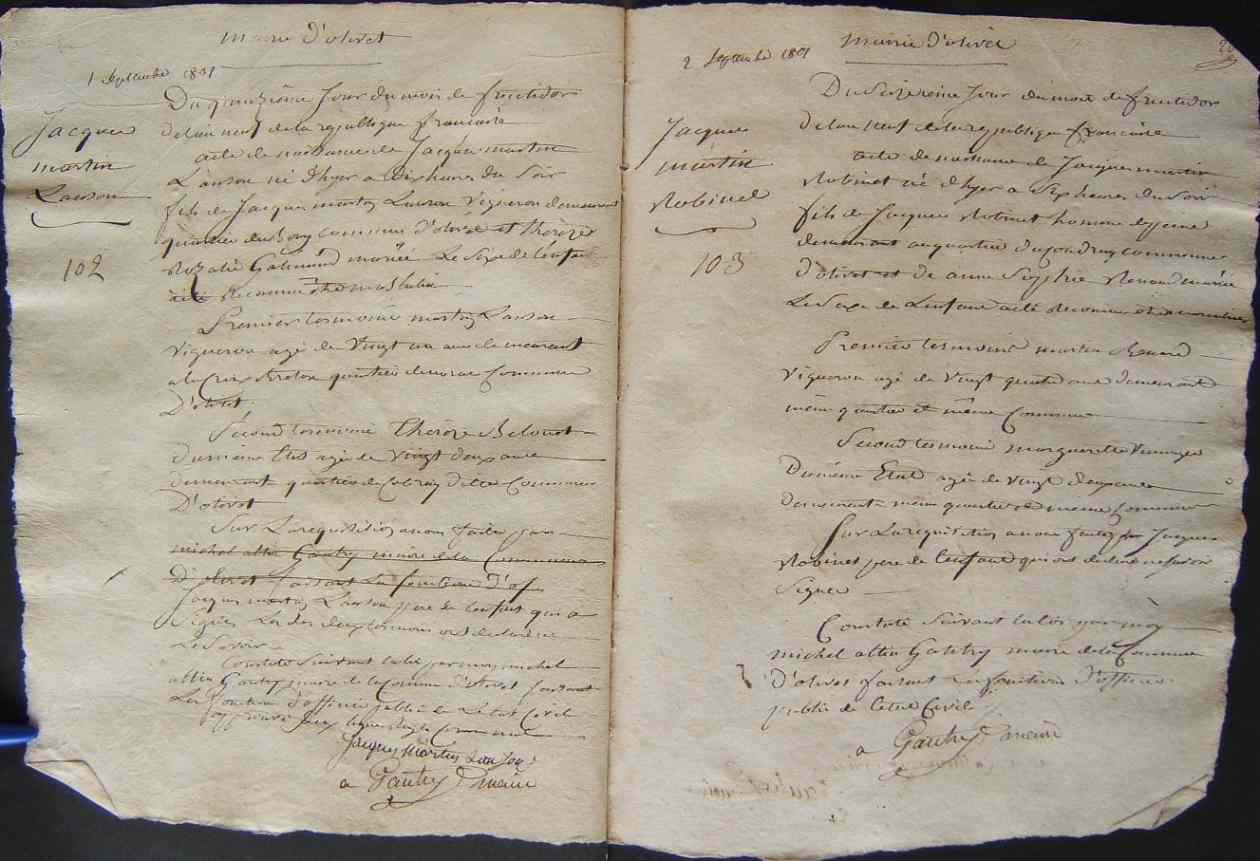 Mairie d'olivet
1 Septembre 1801
Jacques
martin
Lanson
102
Du quinzième Jour du mois de fructidor
de l'an neuf de la republique francaise
acte de naissance de Jacques martin
Lanson né d'hyer a dix heures du Soir
fils de Jacques martin Lanson Vigneron demeurant
quartier du Bourg commune d'olivet et thereze
Rozalie mariée Le Sexe de l'enfant
a été reconnu être masculin
Premier temoins martin Lanson
Vigneron agé de Vingt un ans demeurant
a la Croix quartier commune
D'olivet
Second temoins thereze
du même Etat agé de Vingt deux ans
demeurant quartier de dite Commune
D'olivet
Sur La requisition a nous faite par
michel Gautry maire de la Commune
D'olivet faisant La fonction d'of
Jacques martin Lanson pere de l'enfant qui a
Signé Les deux temoins ont déclaré ne
Le Savoir
Constaté Suivant la loi par moy michel
Gautry maire de la Commune d'olivet faisant
La fonction d'officier public de L'etat Civil
approuvé
Jacques Martin Lanson
a Gautry maire
Mairie d'olivet
2 Septembre 1801
Jacques
martin
Robinet
103
Du Seizieme Jour du mois de fructidor
de l'an neuf de la republique francaise
acte de naissance de Jacques martin
Robinet né d'hyer a Six heures du Soir
fils de Jacques Robinet homme de peine
demeurant au quartier commune
d'olivet et de anne Sophie Renard mariée
Le Sexe de L'enfant a été reconnu être masculin
Premier temoins martin Renard
Vigneron agé de Vingt quatre ans demeurant
même quartier et même Commune
Second temoins marguerite
Du même Etat agé de Vingt deux ans
demeurant même quartier et meme Commune
Sur La requisition a nous faite par Jacques
Robinet pere de l'enfant qui ont déclaré ne savoir
Signer
Constaté Suivant la loi par moy
michel Gautry maire de la Commune
D'olivet faisant La fonction d'officier
public de l'etat Civil
a Gautry maire